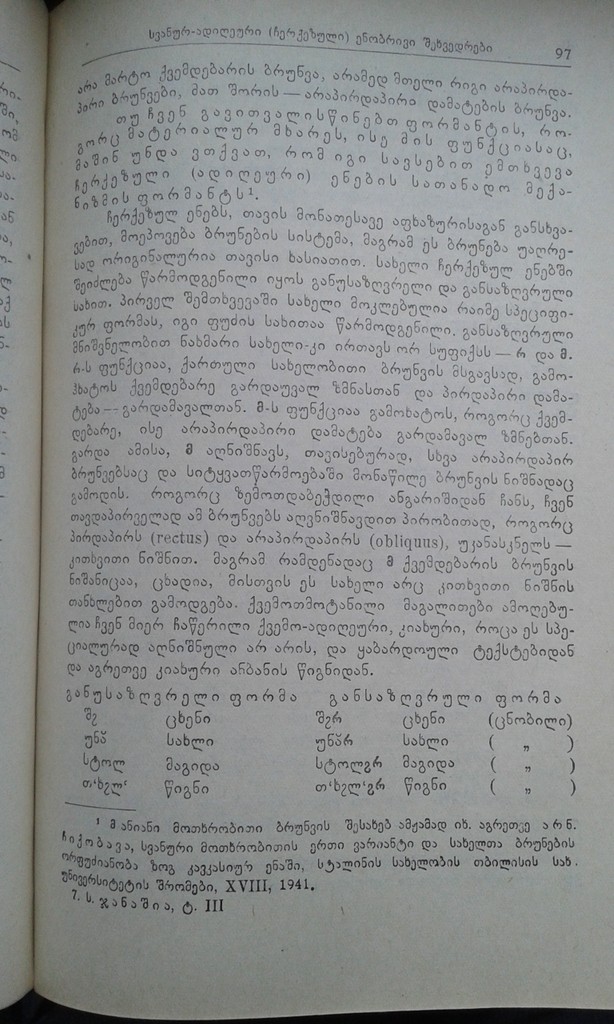 სვანურ-ადიღეური (ჩერქეზული) ენობრივი შეხვედრები 97
არა მარტო ქვემდებარის ბრუნვა, არამედ მთელი რიგი არაპირდა-
პირი ბრუნვები, მათ შორის — არაპირდაპირი დამატების ბრუნვა.
თუ ჩვენ გავითვალისწინებთ ფორმანტის, რო-
გორც მატერიალურ მხარეს, ისე მის ფუნქციასაც,
მაშინ უნდა ვთქვათ, რომ იგი სავსებით ემთხვევა
ჩერქეზული (ადიღეური) ენების სათანადო მექა-
ნიზმის ფორმანტს¹.
ჩერქეზულ ენებს, თავის მონათესავე აფხაზურისაგან განსხვა-
ვებით, მოეპოვება ბრუნების სისტემა, მაგრამ ეს ბრუნება უაღრე-
სად ორიგინალურია თავისი ხასიათით. სახელი ჩერქეზულ ენებში
შეიძლება წარმოდგენილი იყოს განუსაზღვრელი და განსაზღვრული
სახით. პირველ შემთხვევაში სახელი მოკლებულია რაიმე სპეციფი-
კურ ფორმას, იგი ფუძის სახითაა წარმოდგენილი. განსაზღვრული
მნიშვნელობით ნახმარი სახელი-კი ირთავს ორ სუფიქსს — რ და მ.
რ-ს ფუნქციაა, ქართული სახელობითი ბრუნვის მსგავსად, გამო-
ჰხატოს ქვემდებარე გარდაუვალ ზმნასთან და პირდაპირი დამა-
ტება — გარდამავალთან. მ-ს ფუნქციაა გამოხატოს, როგორც ქვემ-
დებარე, ისე არაპირდაპირი დამატება გარდამავალ ზმნებთან.
გარდა ამისა, მ აღნიშნავს, თავისებურად, სხვა არაპირდაპირ
ბრუნვებსაც და სიტყვათწარმოებაში მონაწილე ბრუნვის ნიშნადაც
გამოდის. როგორც ზემოთდაბეჭდილი ანგარიშიდან ჩანს, ჩვენ
თავდაპირველად ამ ბრუნვებს აღვნიშნავდით პირობითად, როგორც
პირდაპირს (rectus) და არაპირდაპირს (obliquus), უკანასკნელს —
კითხვითი ნიშნით. მაგრამ რამდენადაც მ ქვემდებარის ბრუნვის
ნიშანიცაა, ცხადია, მისთვის ეს სახელი არც კითხვითი ნიშნის
თანხლებით გამოდგება. ქვემოთმოტანილი მაგალითები ამოღებუ-
ლია ჩვენ მიერ ჩაწერილი ქვემო-ადიღეური, კიახური, როცა ეს სპე-
ციალურად აღნიშნული არ არის, და ყაბარდოული ტექსტებიდან
და აგრეთვე კიახური ანბანის წიგნიდან.
განუსაზღვრელი ფორმა განსაზღვრული ფორმა
ცხენი ცხენი (ცნობილი)
სახლი სახლი ( „ )
სტოლ მაგიდა მაგიდა ( „ )
წიგნი წიგნი ( „ )
¹ მანიანი მოთხრობითი ბრუნვის შესახებ ამჟამად იხ. აგრეთვე არნ.
ჩიქობავა, სვანური მოთხრობითის ერთი ვარიანტი და სახელთა ბრუნების
ორფუძიანობა ზოგ კავკასიურ ენაში, სტალინის სახელობის თბილისის სახ.
უნივერსიტეტის შრომები, XVIII, 1941.
7. ს. ჯანაშია, ტ. III